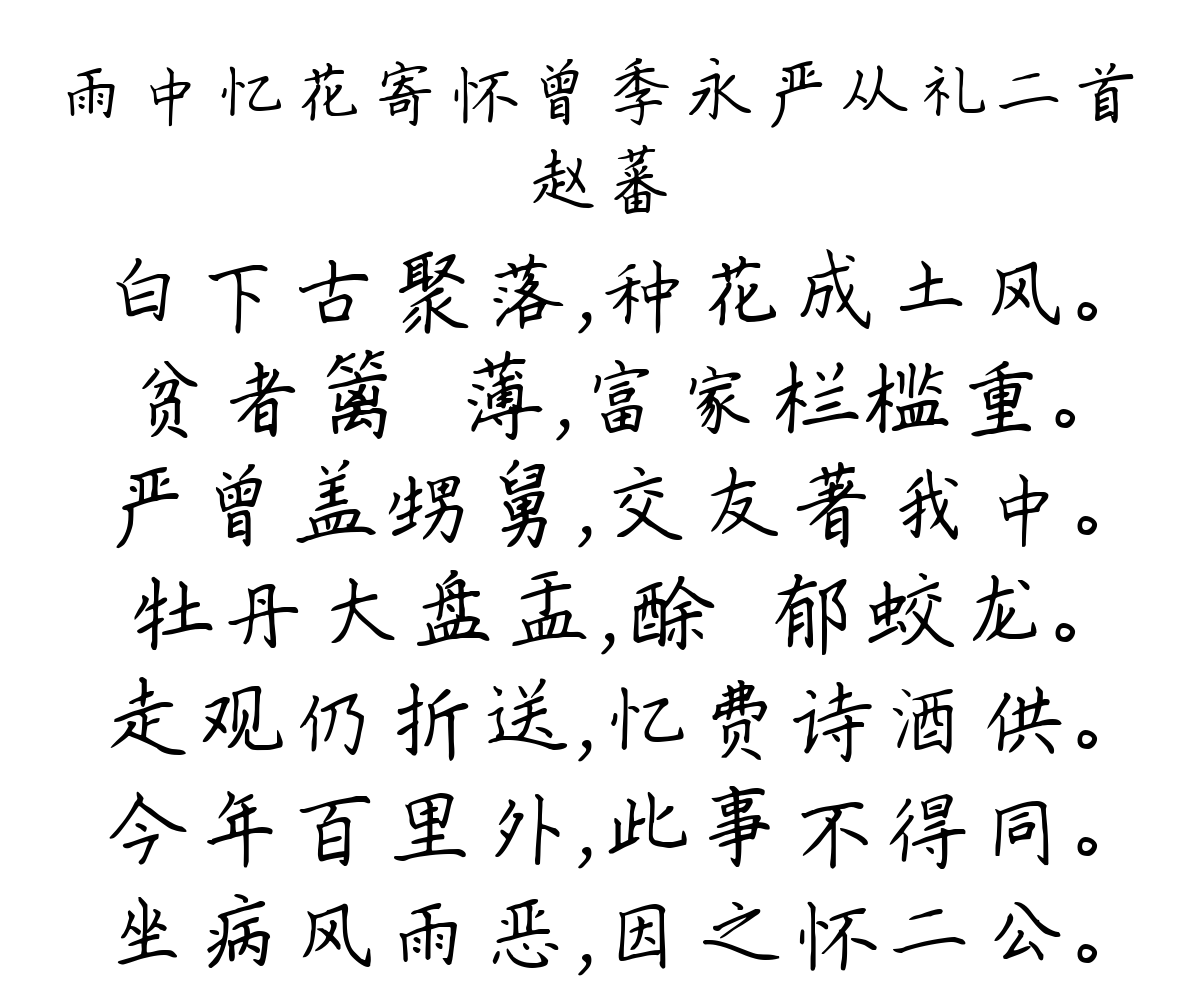 雨中忆花寄怀曾季永严从礼二首
赵蕃
白下古聚落,种花成土风。
贫者篱 薄,富家栏槛重。
严曾盖甥舅,交友著我中。
牡丹大盘盂,酴 郁蛟龙。
走观仍折送,忆费诗酒供。
今年百里外,此事不得同。
坐病风雨恶,因之怀二公。